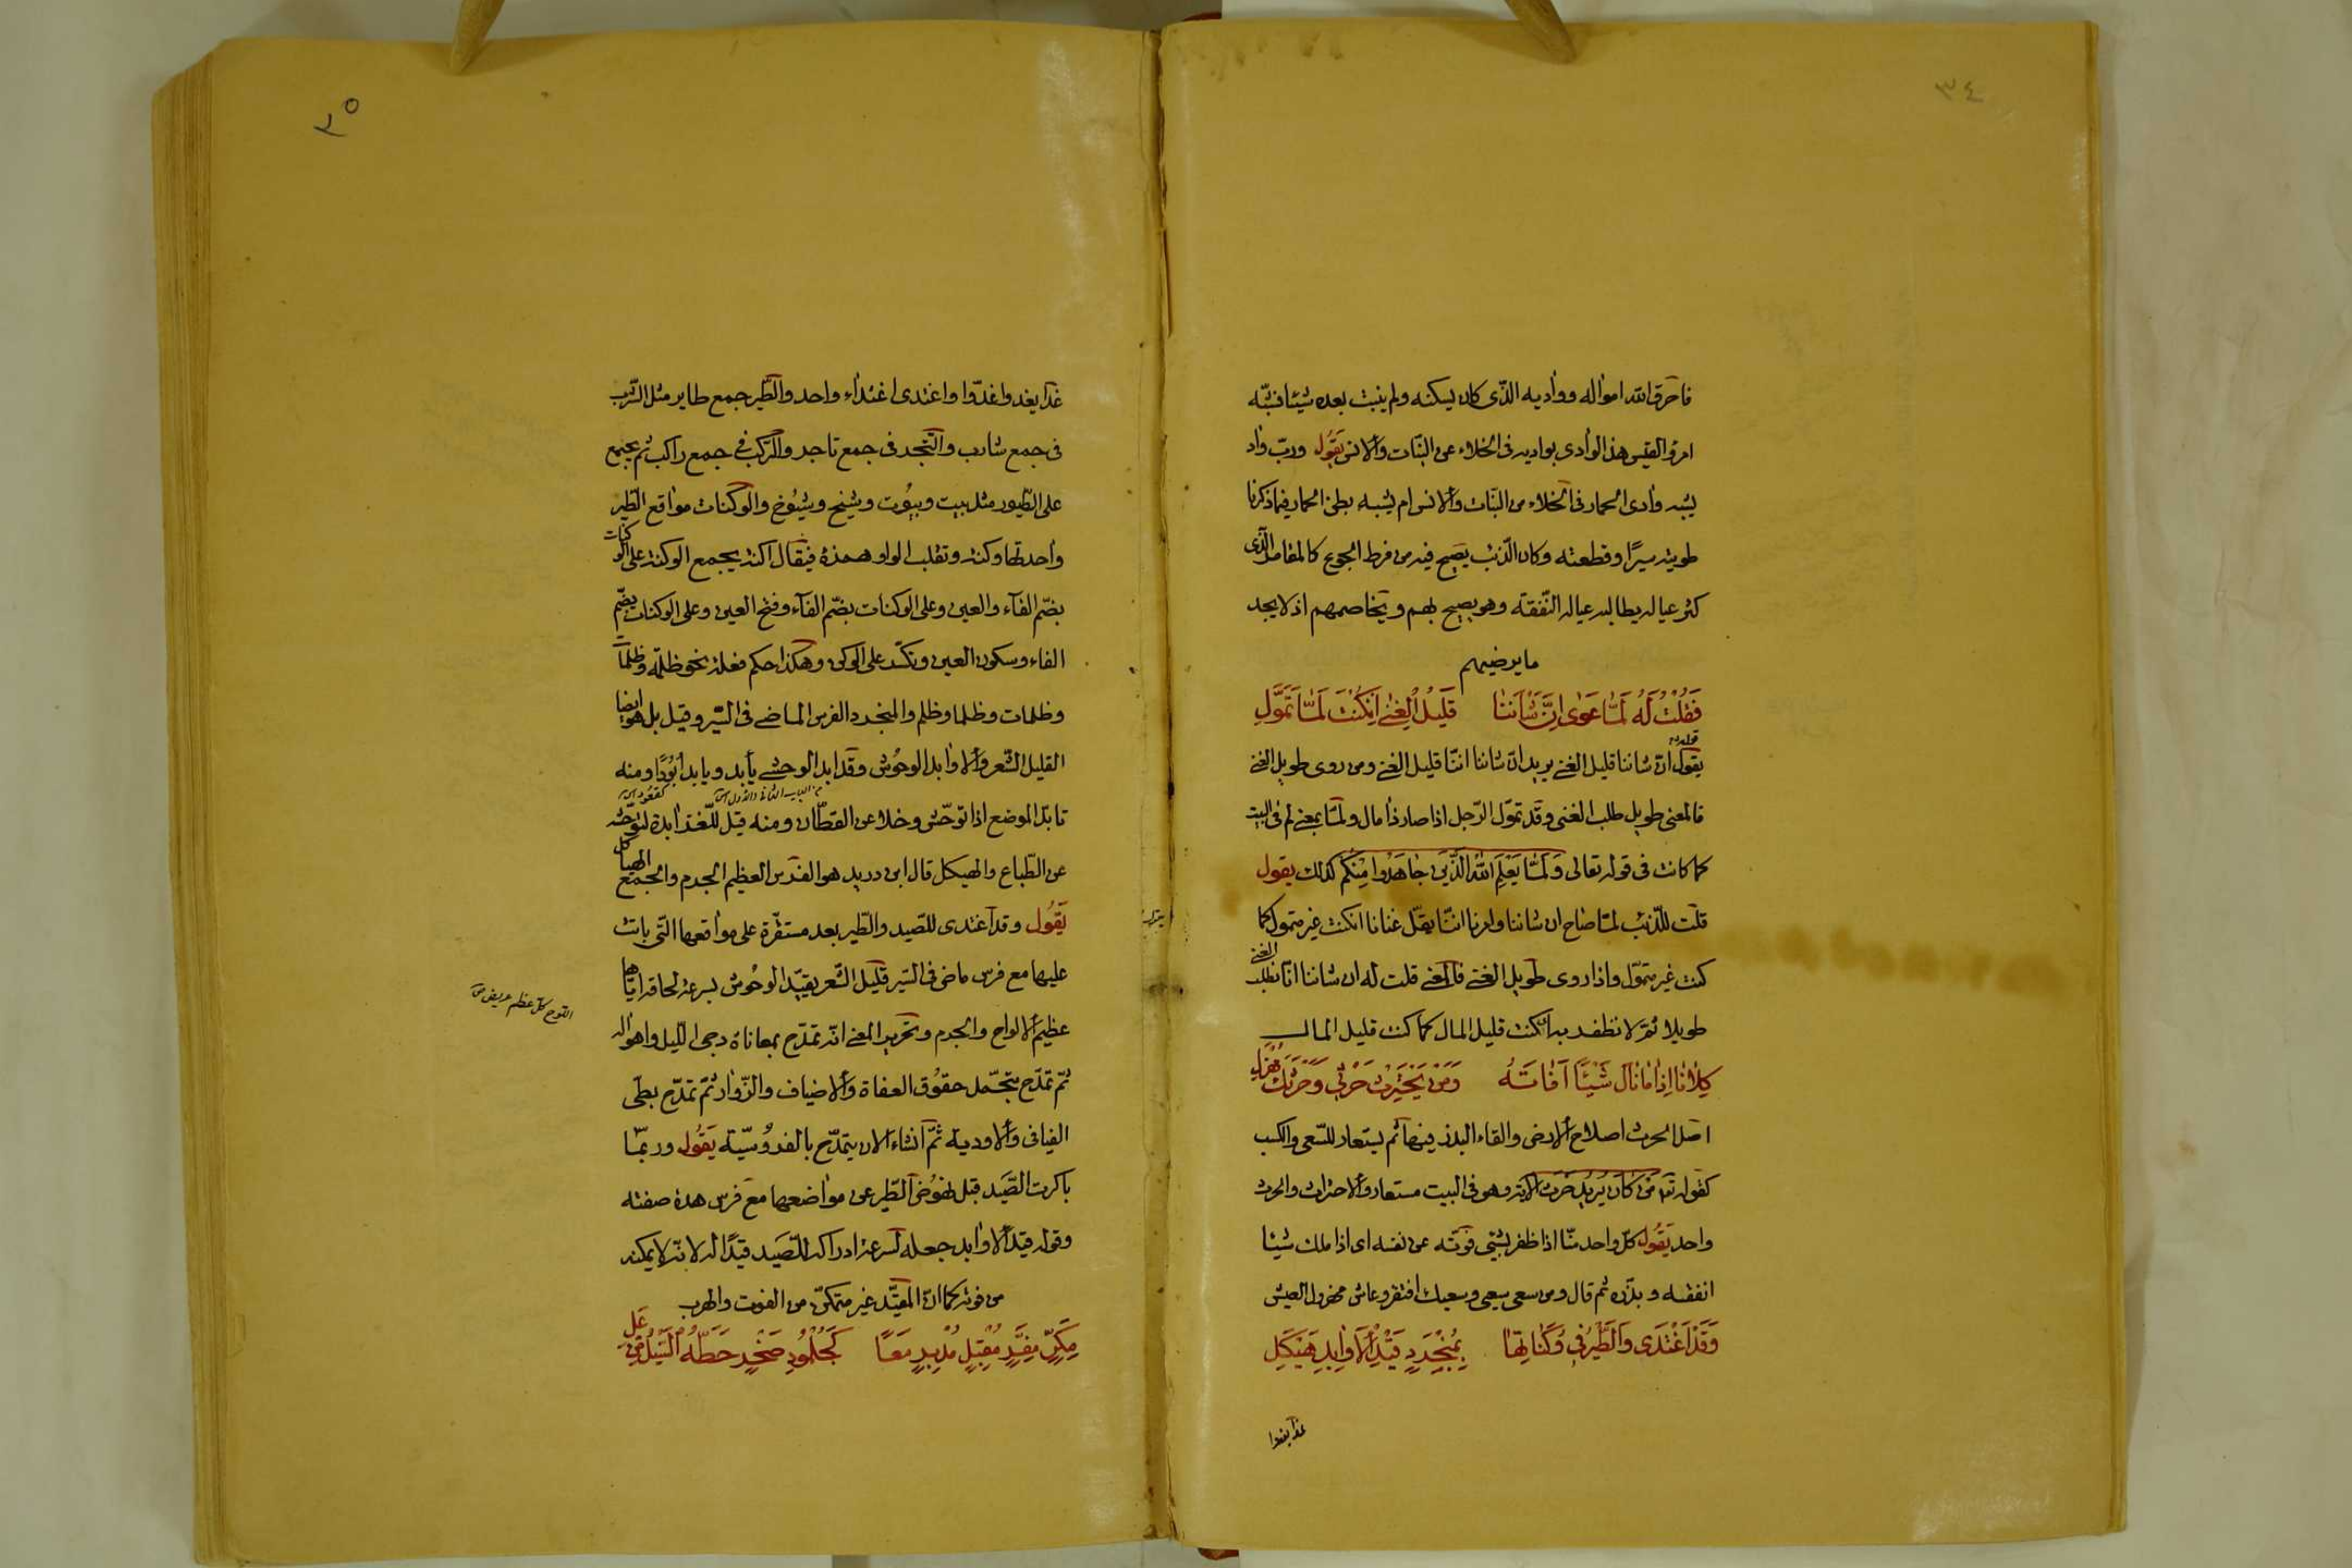 ٣٤
فاحرق الله امواله وواديه الذى كان يسكنه ولم ينبت بعده شيئا فشبّه
امرؤ القيس هذا الوادى بواديه فى الخلاء عن النبات والانس يقول وربّ واد
يشبه وادى الحمار فى الخلاء من النبات والانس ام يشبه بطن الحمار فيما ذكرنا
طويته سيرًا وقطعته وكان الذئب يصيح فيه من فرط الجوع كالمقامر الذى
كثر عياله يطالبه عياله النّفقة وهو يصيح بهم ويخاصمهم اذ لا يجد
ما يرضيهم
فَقُلْتُ لَهُ لَمَّا عَوٰى اِنَّ شَاْنَنٰا قَلِيلُ الْغِنٰى اِنْ كُنْتَ لَمَّا تَمَوَّلِ
قوله
يقول انّ شاننا قليل الغنى يريد انّ شاننا انّنا قليل الغنى ومن روى طويل الغنى
فالمعنى طويل طلب الغنى وقد تموّل الرّجل اذا صار ذا مال ولمّا بمعنى لم فى البيت
كما كانت فى قوله تعالى وَلَمَّا يَعْلَمِ اللهُ الَّذِينَ جَاهَدُوا مِنْكُم كذلك يقول
قلت للذّئب لمّا صاح ان شاننا وامرنا انّنا يقلّ غنانا ان كنت غير متمول كما
كنت غير متموّل واذا روى طويل الغنى فالمعنى قلت له ان شاننا انّا نطلب الغنى
طويلا ثمّ لا نظفر به ان كنت قليل المال كما كنت قليل المال
كِلٰانٰا اِذٰا مٰا نٰالَ شَيْئًا اَفٰاتَهُ وَمَنْ يَحْتَرِثْ حَرْثِى وَحَرْثَكَ يُهْزَلِ
اصل الحرث اصلاح الارض والقاء البذر فيها ثم يستعار للسّعى والكسب
كقوله تعـ مَن كَانَ يُرِيدُ حَرثَ الآية وهو فى البيت مستعار والاحتراث والحرث
واحد يَقُول كلّ واحد منّا اذا ظفر بشئ فوّته عن نفسه اى اذا ملك شيئا
انفقه وبذّره ثم قال ومن سعى سعيى وسعيك افتقر وعاش مهزول العيش
وَقَدْ اَغْتَدِى وَالطَّيْرُ فِى وُكُنٰاتِهٰا بِمُنْجَرِدٍ قَيْدِ الْاَوٰابِدِ هَيْكَلِ
غدا يغدوا
٣٥
غدا يغدوا غدوّا واغتدى اغتداء واحد والطّير جمع طاير مثل الشّرب
فى جمع شارب والتّجر فى جمع تاجر والرّكب فى جمع راكب ثم يجمع
على الطّيور مثل بيت وبيُوت وشيخ وشيُوخ والوكنات مواقع الطير
واحدتها وكنة وتقلب الواو همزة فيقال اكنة يجمع الوكنة على الوكنات
بضمّ الفآء والعين وعلى الوكنات بضّم الفآء وفتح العين وعلى الوكنات بضمّ
الفاء وسكون العين وتكسّر على الوكن وهكذا حكم فعلة نحو ظلمة وظلمات
وظلمات وظلمات وظلم والمنجرد الفرس الماضى فى السّير وقيل بل هو ايضا
القليل الشّعر والاوابد الوحُوش وقد ابد الوحشى يأبد ويابد اُبُودًا ومنه
تابّد الموضع اذا توحّش وخلا عن القطّان ومنه قيل للّغز ابدة لتوحّشه
عن الطّباع والهيكل قال ابن دريد هو الفرس العظيم الجرم والجمع الهياكل
يَقُول وقد اغتدى للصّيد والطّير بعد مستقرّة على مواقعها التى باتت
عليها مع فرس ماضى فى السّير قليل الشّعر يقيّد الوحُوش بسرعة لحاقه ايّاها
اللوح كل عظم عريض ص
عظيم الالواح والجرم وتحرير المعنى انّه تمدّح بمعاناة دجى اللّيل واهواله
ثمّ تمدّح بتحمّل حقوُق العفاة والاضياف والزّوار ثمّ تمدّح بطىّ
الفيافى والاودية ثمَّ انشاء الان يتمدّح بالفروُسيّة يَقُول وربمّا
باكرت الصّيد قبل نهوُض الطّير عن مواضعها مع فرس هذه صفته
وقوله قيد الاوابد جعله لسرعة ادراكه الصّيد قيدًا له لانّه لا يمكنه
من فوته كما انّ المقيّد غير متمكّن من الفوت والهرب
مِكَرٍّ مِفَرٍّ مُقْبِلٍ مُدْبِرٍ مَعًا كَجُلْمُودِ صَخْرٍ حَطَّهُ السَّيْلُ مِنْ عَلِ